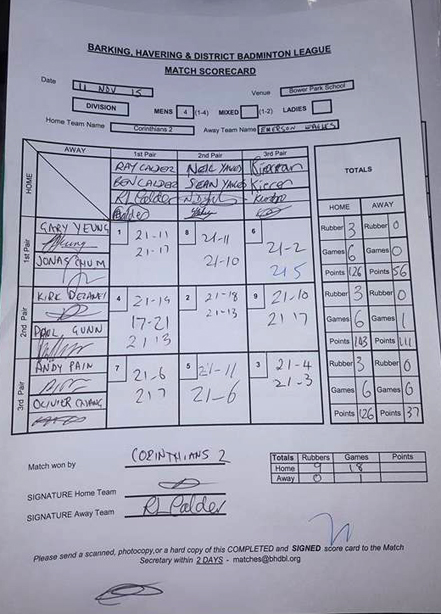 BARKING, HAVERING & DISTRICT BADMINTON LEAGUE
MATCH SCORECARD
Date 11 NOV 15 Venue Bower Park School
DIVISION MENS 4 (1-4) MIXED (1-2) LADIES
Home Team Name Corinthians 2 Away Team Name EMERSON
AWAY 1st Pair 2nd Pair 3rd Pair TOTALS
HOME RAY CALDER NEIL
BEN CALDER SEAN
R Calder HOME AWAY
1st Pair GARY YEUNG 1 21-11 8 21-11 6 21-2 Rubber 3 Rubber 0
21-17 21-10 21 5 Games 6 Games 0
JONAS CHUM Points 126 Points 56
2nd Pair KIRK 4 21-19 2 21-18 9 21-10 Rubber 3 Rubber 0
17-21 21-13 21 17 Games 6 Games 1
PAUL GUNN 21 13 Points Points
3rd Pair ANDY PAIN 7 21-6 5 21-11 3 21-4 Rubber 3 Rubber 0
21 7 21-6 21-3 Games 6 Games 0
OLIVIER Points 126 Points 37
Match won by CORINTHIANS 2
Totals Rubbers Games Points
Home 9 18
Away 0 1
SIGNATURE Home Team
SIGNATURE Away Team R Calder
Please send a scanned, photocopy,or a hard copy of this COMPLETED and SIGNED score card to the Match
Secretary within 2 DAYS - matches@bhdbl.org